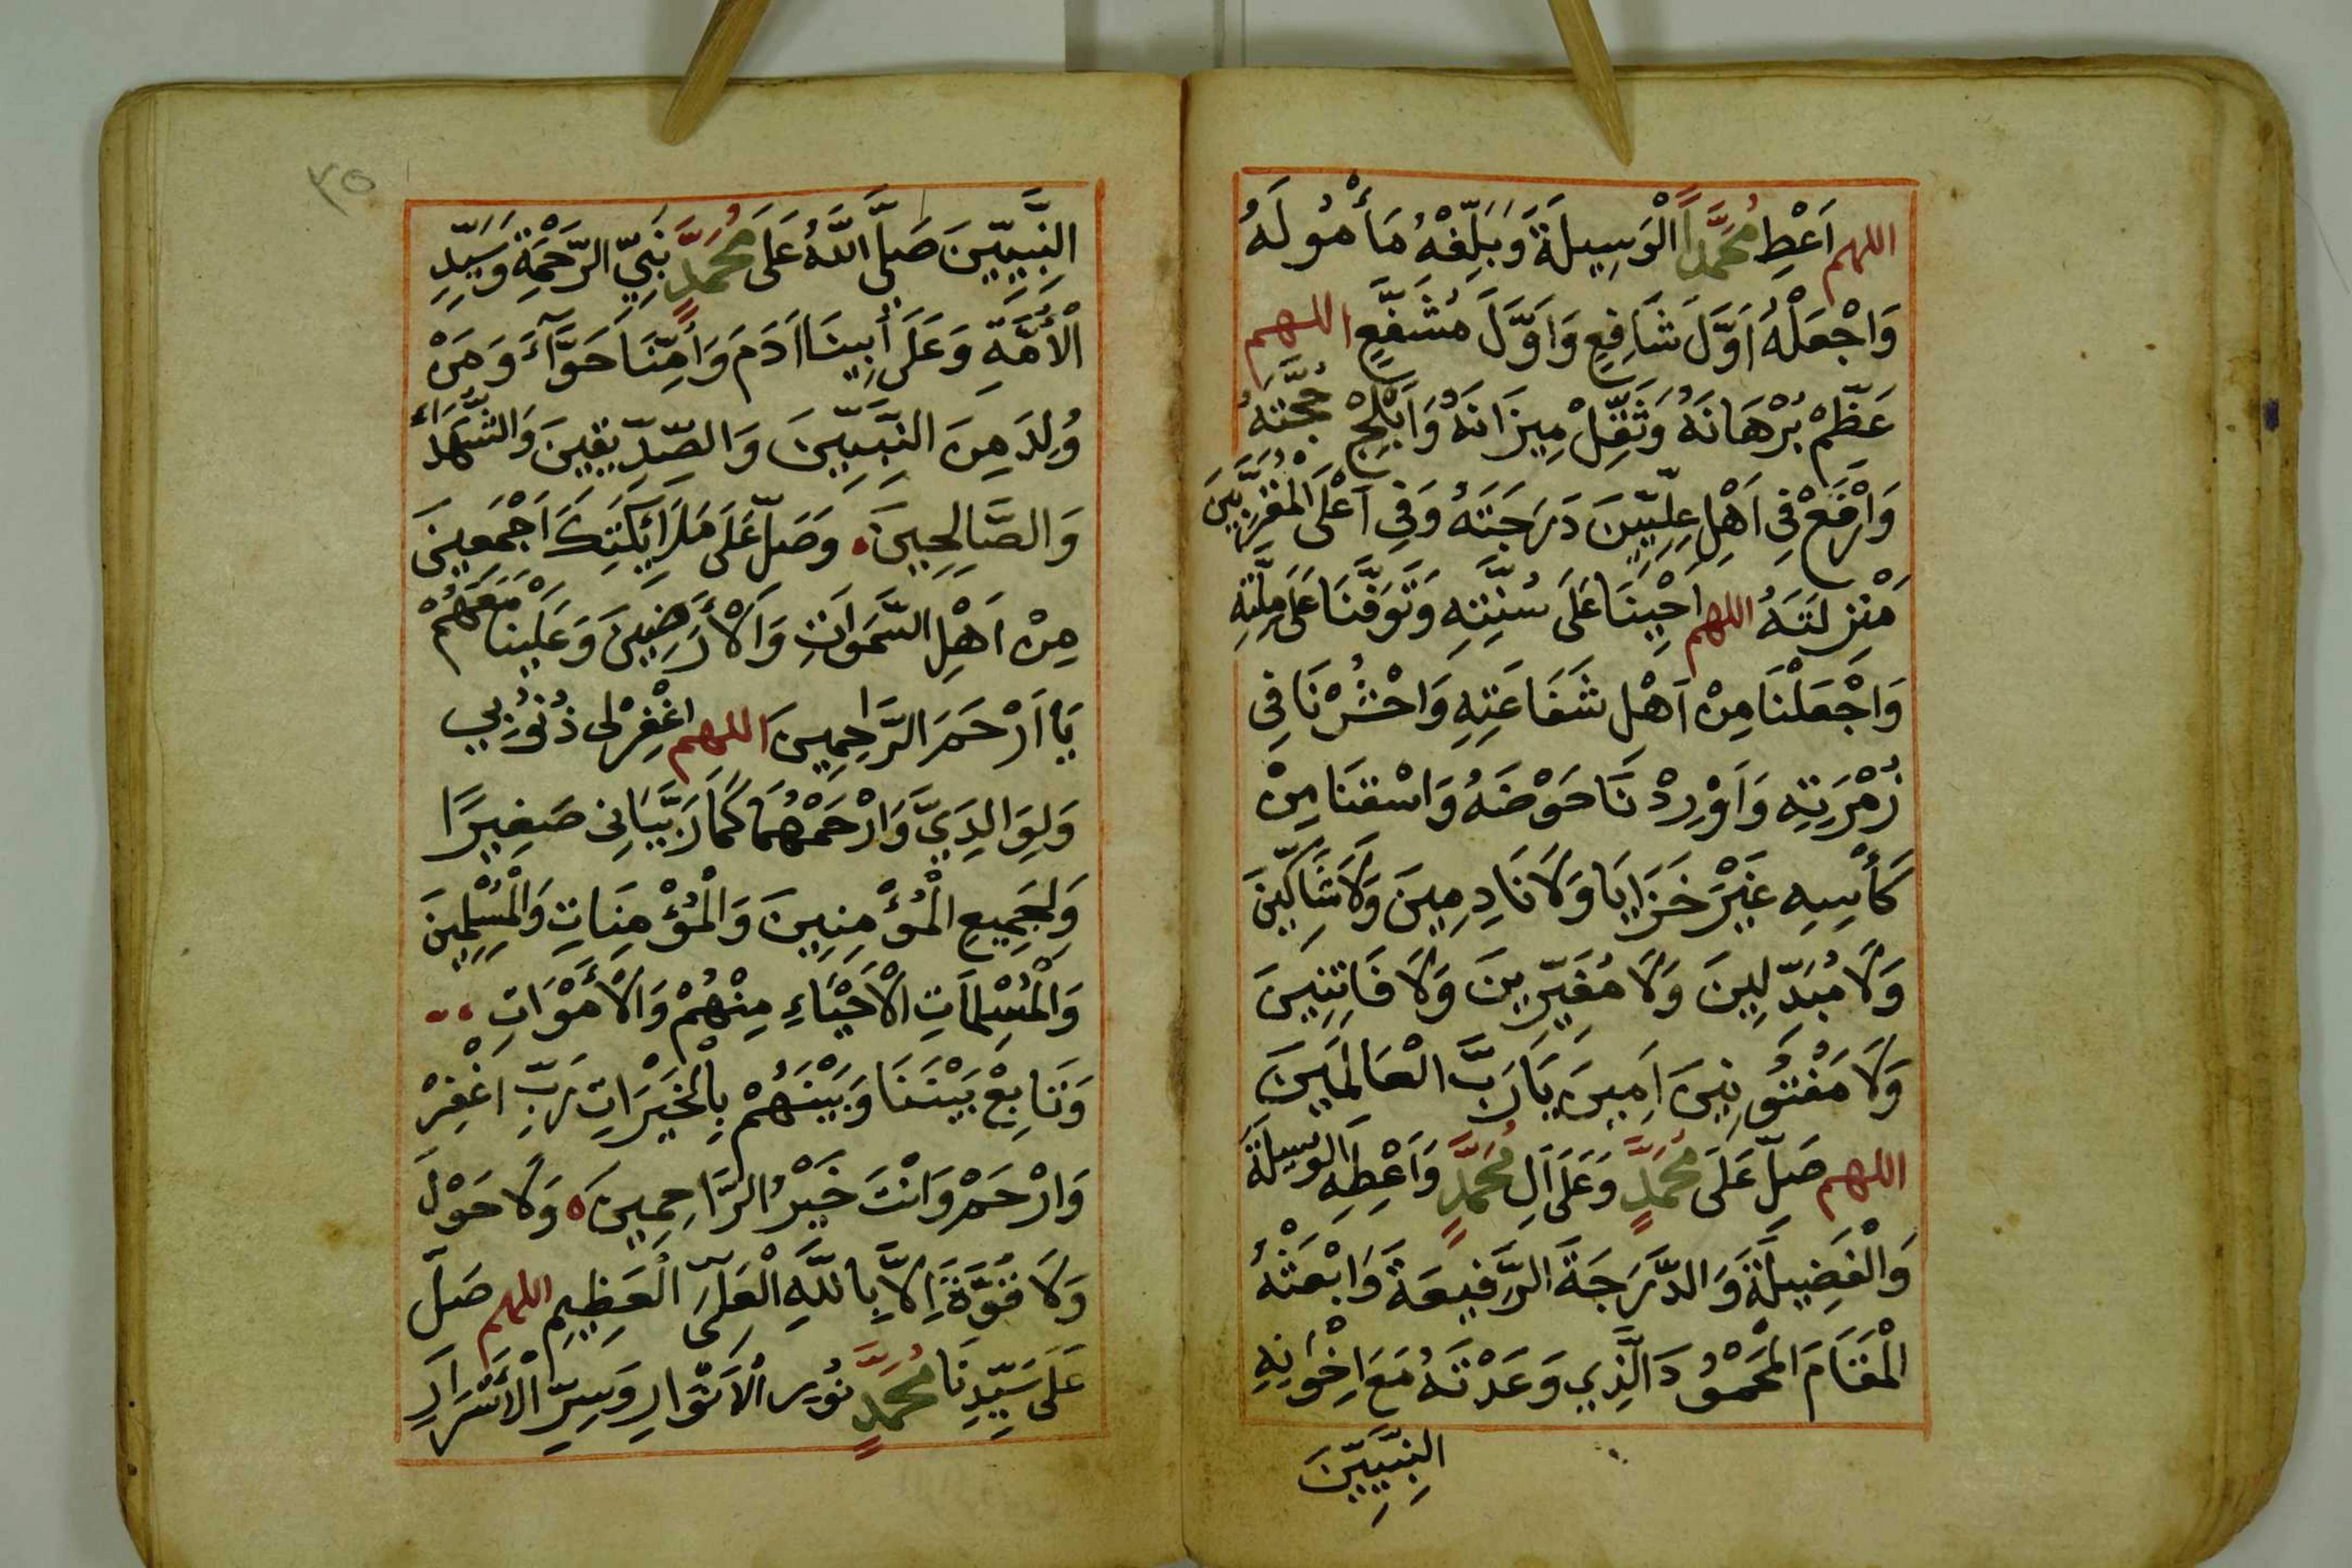 اللهم اَعْطِ مُحَمَّداً الْوَسِيلَةَ وَبَلِّغْهُ مَأْمُولَهُ
وَاجْعَلْهُ اَوَّلَ شَافِعٍ وَاَوَّلَ مُشَفَّعٍ اللهم
عَظِّمْ بُرْهَانَهُ وَثَقِّلْ مِيزَانَهُ وَاَبْلِجْ حُجَّتَهُ
وَارْفَعْ فِى اَهْلِ عِلِّيِّينَ دَرَجَتَهُ وَفِى اَعْلَى الْمُقَرَّبِينَ
مَنْزِلَتَهُ اللهم اَحْيِنَا عَلَى سُنَّتِهِ وَتَوَفَّنَا عَلَى مِلَّتِهِ
وَاجْعَلْنَا مِنْ اَهْلِ شَفَاعَتِهِ وَاحْشُرْنَا فِى
زُمْرَتِهِ وَاَوْرِدْنَا حَوْضَهُ وَاسْقِنَا مِنْ
كَأْسِهِ غَيْرَ خَزَايَا وَلَا نَادِمِينَ وَلَا شَاكِّينَ
وَلَا مُبَدِّلِينَ وَلَا مُغَيِّرِينَ وَلَا فَاتِنِينَ
وَلَا مَفْتُونِينَ اَمِينَ يَارَبَّ الْعَالَمِينَ
اللهم صَلِّ عَلَى مُحَمَّدٍ وَعَلَى اَلِ مُحَمَّدٍ وَاَعْطِهِ الْوَسِيلَةَ
وَالْفَضِيلَةَ وَالدَّرَجَةَ الرَّفِيعَةَ وَابْعَثْهُ
الْمَقَامَ الْمَحْمُودَ الَّذِي وَعَدْتَهُ مَعَ اِخْوَانِهِ
النَّبِيِّينَ
٣٥
النَّبِيِّينَ صَلَّى اللَّهُ عَلَى مُحَمَّدٍ نَبِيِّ الرَّحْمَةِ وَسَيِّدِ
الْأُمَّةِ وَعَلَى أَبِينَا اَدَمَ وَأُمِّنَا حَوَّآءَ وَمَنْ
وُلِدَ مِنَ النَّبِيِّينَ وَالصِّدِّيقِينَ وَالشُّهَدَاءِ
وَالصَّالِحِينَ وَصَلِّ عَلَى مَلَائِكَتِكَ اَجْمَعِينَ
مِنْ اَهْلِ السَّمَوَاتِ وَالْأَرَضِينَ وَعَلَيْنَا مَعَهُمْ
يَا اَرْحَمَ الرَّاحِمِينَ اللهم اغْفِرْلِى ذُنُوبِي
وَلِوَالِدَيَّ وَارْحَمْهُمَا كَمَا رَبَّيَانِى صَغِيرًا
وَلِجَمِيعِ الْمُؤْمِنِينَ وَالْمُؤْمِنَاتِ وَالْمُسْلِمِينَ
وَالْمُسْلِمَاتِ الْأَحْيَاءِ مِنْهُمْ وَالْأَمْوَاتِ
وَتَابِعْ بَيْنَنَا وَبَيْنَهُمْ بِالْخَيْرَاتِ رَبِّ اغْفِرْ
وَارْحَمْ وَاَنْتَ خَيْرُ الرَّاحِمِينَ ه وَلَا حَوْلَ
وَلَا قُوَّةَ اِلَّا بِاللَّهِ الْعَلِىِّ الْعَظِيمِ اللهم صَلِّ
عَلَى سَيِّدِنَا مُحَمَّدٍ نُورِ الْاَنْوَارِ وَسِرِّ الْأَسْرَارِ